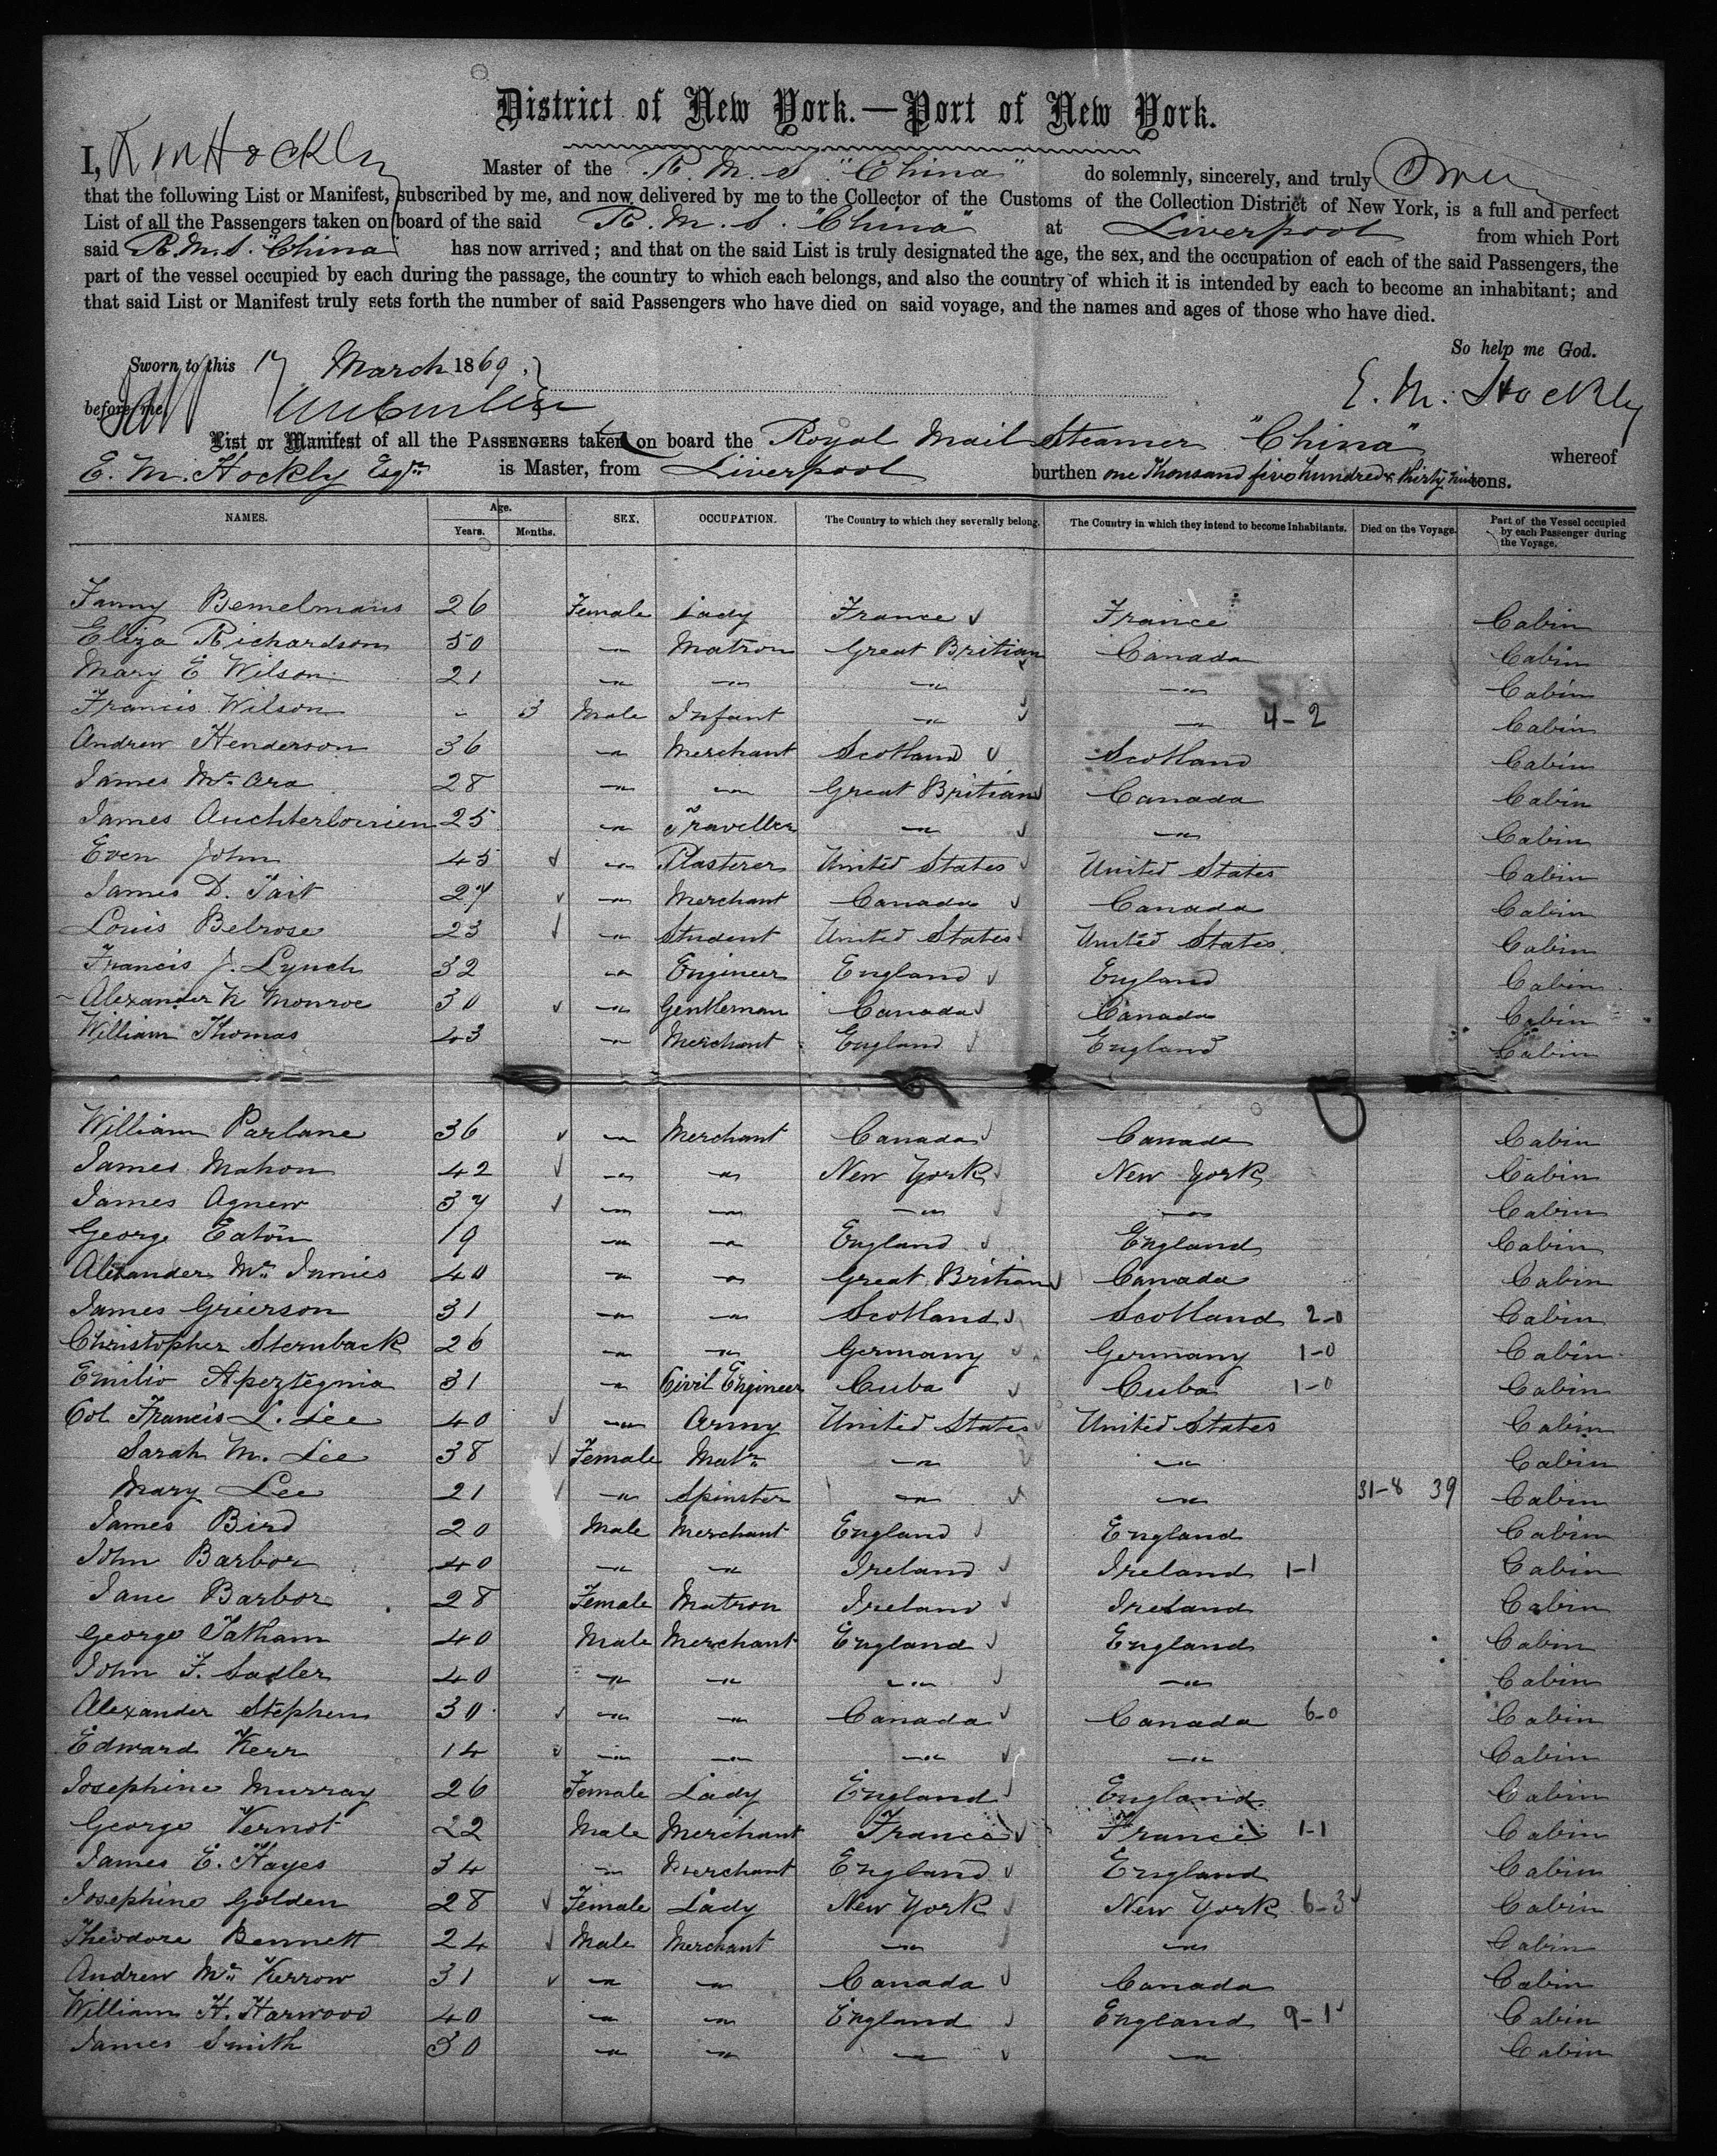 District of New York.—Port of New York.
I, E M Hockly Master of the R. M. S. "China" do solemnly, sincerely, and truly Swear
that the following List or Manifest, subscribed by me, and now delivered by me to the Collector of the Customs of the Collection District of New York, is a full and perfect
List of all the Passengers taken on board of the said R. M. S. "China" at Liverpool from which Port
said R. M. S. "China" has now arrived; and that on the said List is truly designated the age, the sex, and the occupation of each of the said Passengers, the
part of the vessel occupied by each during the passage, the country to which each belongs, and also the country of which it is intended by each to become an inhabitant; and
that said List or Manifest truly sets forth the number of said Passengers who have died on said voyage, and the names and ages of those who have died.
So help me God.
Sworn to this 17 March 1869.
E. M. Hockly
before me
List or Manifest of all the PASSENGERS taken on board the Royal Mail Steamer "China" whereof
E. M. Hockly Esqr. is Master, from Liverpool burthen one Thousand five hundred & thirty nine tons.
NAMES. Age. Years. Months. SEX. OCCUPATION. The Country to which they severally belong. The Country in which they intend to become Inhabitants. Died on the Voyage. Part of the Vessel occupied by each Passenger during the Voyage.
Fanny Bemelmans 26 Female Lady France France Cabin
Eliza Richardson 50 " Matron Great Britian Canada Cabin
Mary E Wilson 21 " " " " Cabin
Francis Wilson - 3 Male Infant " " 4-2 Cabin
Andrew Henderson 36 " Merchant Scotland Scotland Cabin
James Mc. Ara 28 " " Great Britian Canada Cabin
James Auchterlounien 25 " Traveller " " Cabin
Even John 45 " Plasterer United States United States Cabin
James D. Tait 27 " Merchant Canada Canada Cabin
Louis Belrose 23 " Student United States United States Cabin
Francis J. Lynch 32 " Engineer England England Cabin
Alexander N Monroe 30 " Gentleman Canada Canada Cabin
William Thomas 43 " Merchant England England Cabin
William Parlane 36 " Merchant Canada Canada Cabin
James Mahon 42 " " New York New York Cabin
James Agnew 37 " " " " Cabin
George Eaton 19 " " England England Cabin
Alexander Mc. Innies 40 " " Great Britian Canada Cabin
James Grierson 31 " " Scotland Scotland 2-0 Cabin
Christopher Sternback 26 " " Germany Germany 1-0 Cabin
Emilio Apeztegnia 31 " Civil Engineer Cuba Cuba 1-0 Cabin
Col Francis L. Lee 40 " Army United States United States Cabin
Sarah M. Lee 38 Female Matn " " Cabin
Mary Lee 21 " Spinster " " 31-8 39 Cabin
James Bird 20 Male Merchant England England Cabin
John Barbor 40 " " Ireland Ireland 1-1 Cabin
Jane Barbor 28 Female Matron Ireland Ireland Cabin
George Tatham 40 Male Merchant England England Cabin
John F. Sadler 40 " " " " Cabin
Alexander Stephen 30 " " Canada Canada 6-0 Cabin
Edward Kerr 14 " " " " Cabin
Josephine Murray 26 Female Lady England England Cabin
George Vernot 22 Male Merchant France France 1-1 Cabin
James E. Hayes 34 " Merchant England England Cabin
Josephine Golden 28 Female Lady New York New York 6-3 Cabin
Theodore Bennett 24 Male Merchant " " Cabin
Andrew Mc. Kerrow 31 " " Canada Canada Cabin
William H. Harwood 40 " " England England 9-1 Cabin
James Smith 30 " " " " Cabin